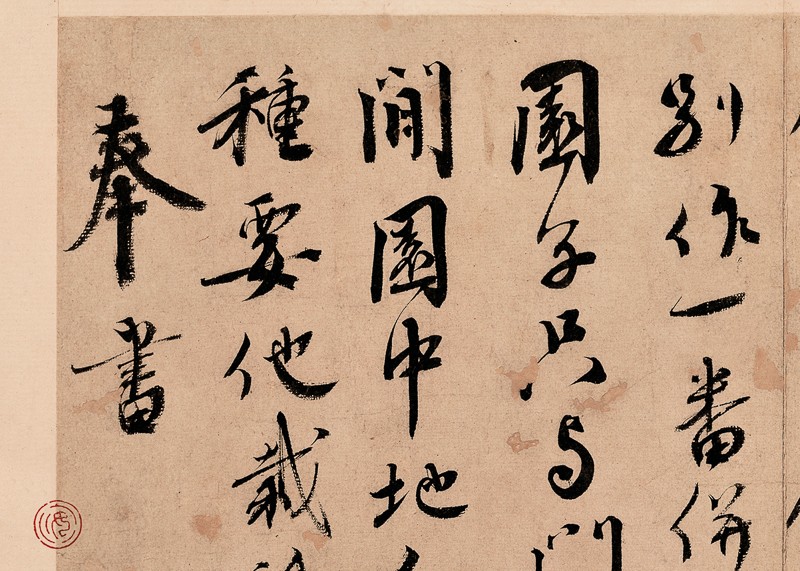 別作一番併
園子只与門
間園中地
種要他栽
奉書